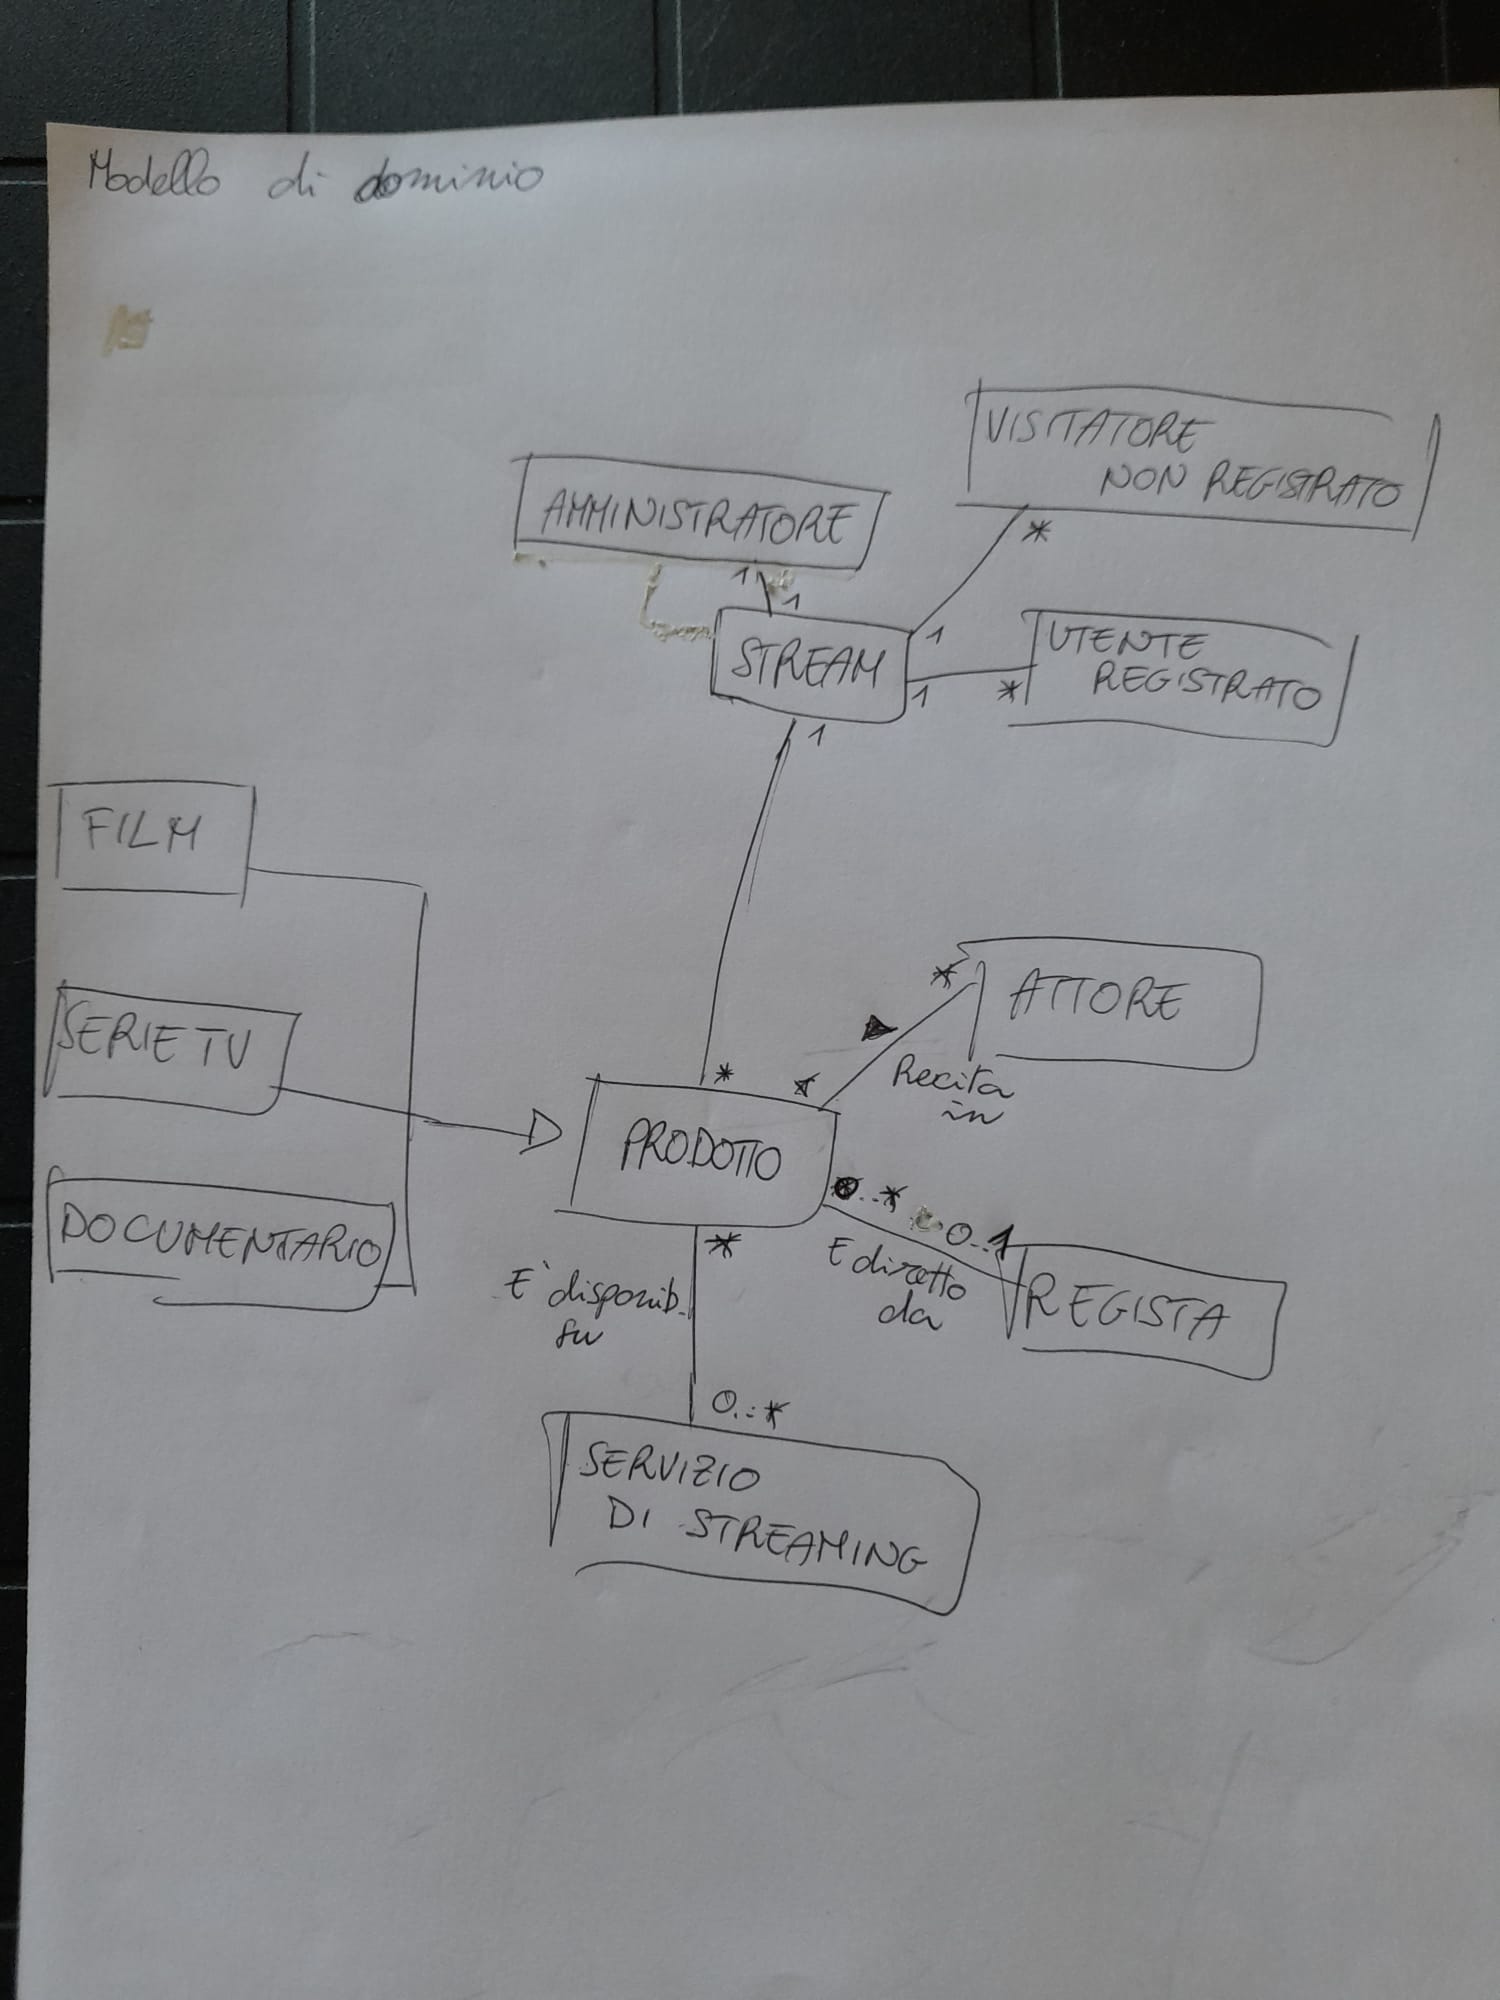 Modello di dominio
VISITATORE
NON REGISTRATO
*
AMMINISTRATORE
1
1
STREAM
1
1
*
UTENTE
REGISTRATO
1
FILM
SERIE TV
DOCUMENTARIO
*
*
*
ATTORE
Recita
in
PRODOTTO
0..*
0..1
E diretto
da
REGISTA
*
E' disponib.
su
0..*
SERVIZIO
DI STREAMING